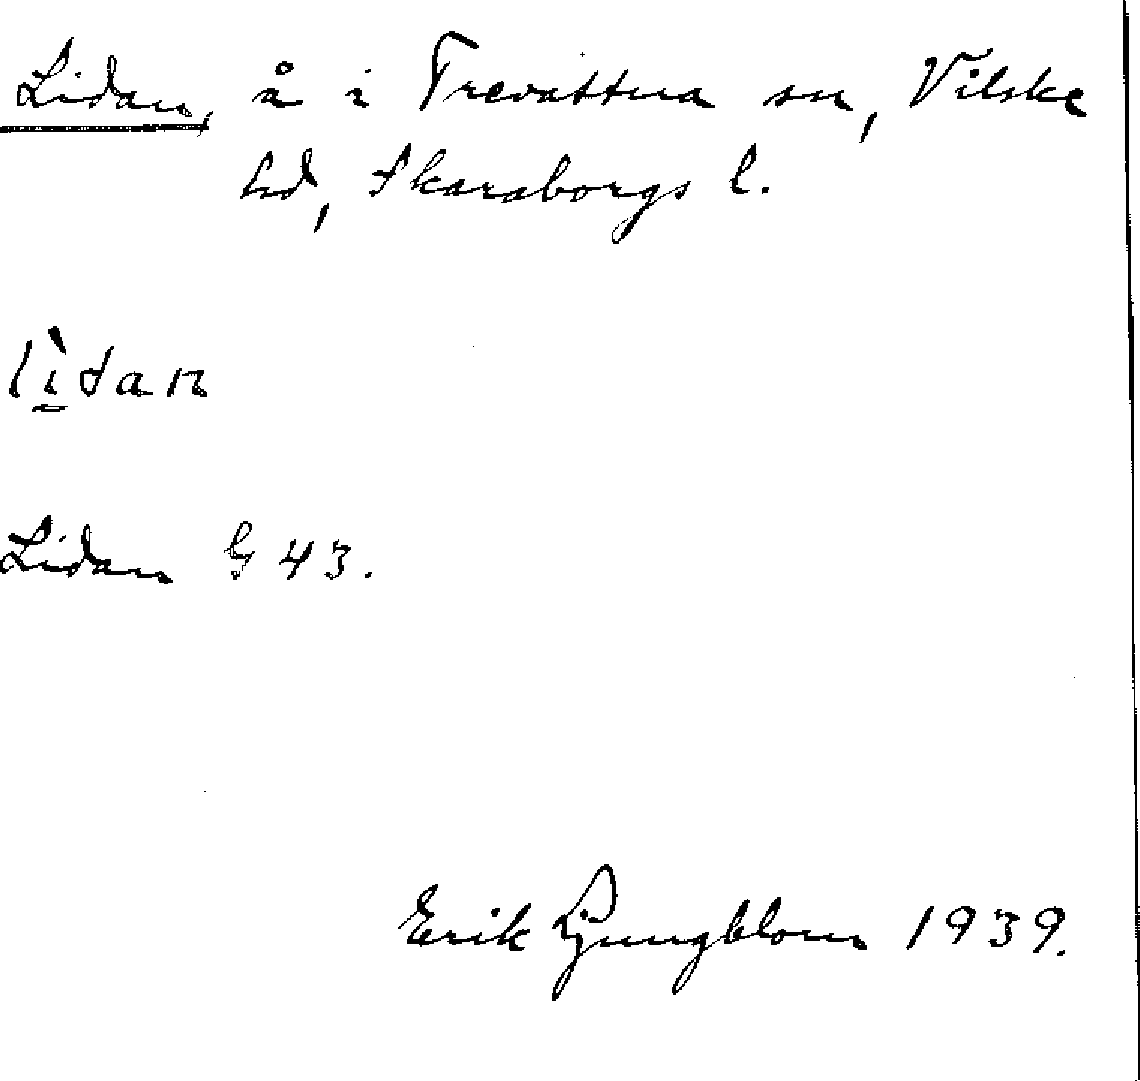 Lidan, å i Trevattna sn, Vilske
hd, Skaraborgs l.
lì̠dan
Lidan G 43.
Erik Ljungblom 1939.